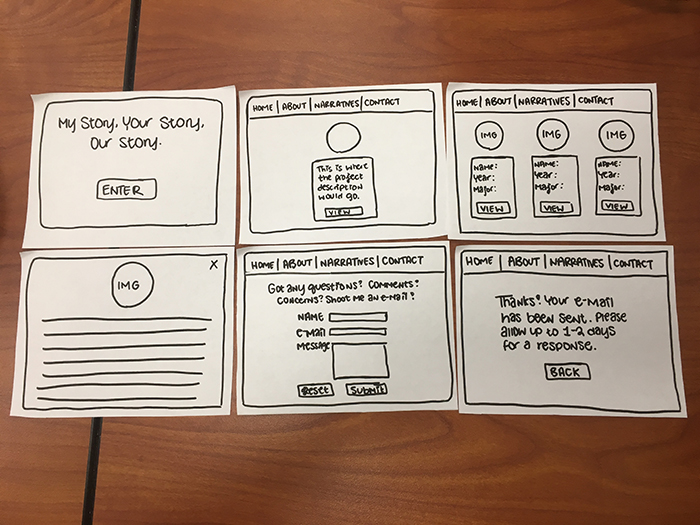 My Story, Your Story,
Our Story.
ENTER
HOME | ABOUT | NARRATIVES | CONTACT
This is where
the project
description
would go.
VIEW
HOME | ABOUT | NARRATIVES | CONTACT
IMG IMG IMG
Name: Name: Name:
Year: Year: Year:
Major: Major: Major:
VIEW VIEW VIEW
X
IMG
HOME | ABOUT | NARRATIVES | CONTACT
Got any questions? Comments?
Concerns? Shoot me an e-mail!
NAME
E-Mail
Message
Reset Submit
HOME | ABOUT | NARRATIVES | CONTACT
Thanks! Your e-mail
has been sent. Please
allow up to 1-2 days
for a response.
BACK